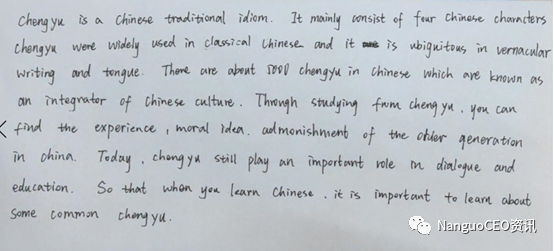 Chengyu is a Chinese traditional idiom. It mainly consist of four Chinese characters
Chengyu were widely used in classical Chinese and it is ubiquitous in vernacular
writing and tongue. There are about 5000 chengyu in Chinese which are known as
an integrator of Chinese culture. Through studying from chengyu, you can
find the experience, moral idea, admonishment of the older generation
in china. Today, chengyu still play an important role in dialogue and
education. So that when you learn Chinese, it is important to learn about
some common chengyu.
NanguoCEO资讯